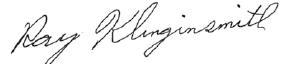 Ray Klinginsmith